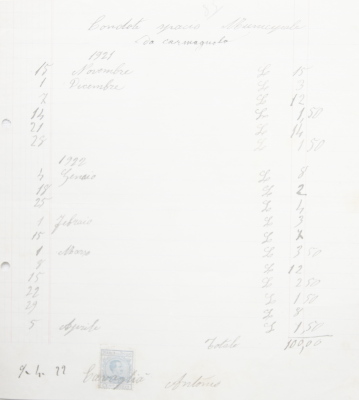 Condoti spacio Municipale
da carmagnola
1921
15 Novembre £ 15
1 Dicembre £ 3
7 £ 12
14 £ 1,50
21 £ 14
28 £ 1,50
1922
4 Genaio £ 8
18 £ 2
25 £ 4
1 Febraio £ 3
15 £
1 Marzo £ 3 50
8 £ 12
15 £ 2 50
22 £ 1 50
29 £ 8
5 Aprile £ 1,50
Totale 100,00
9-4-22 Antonio